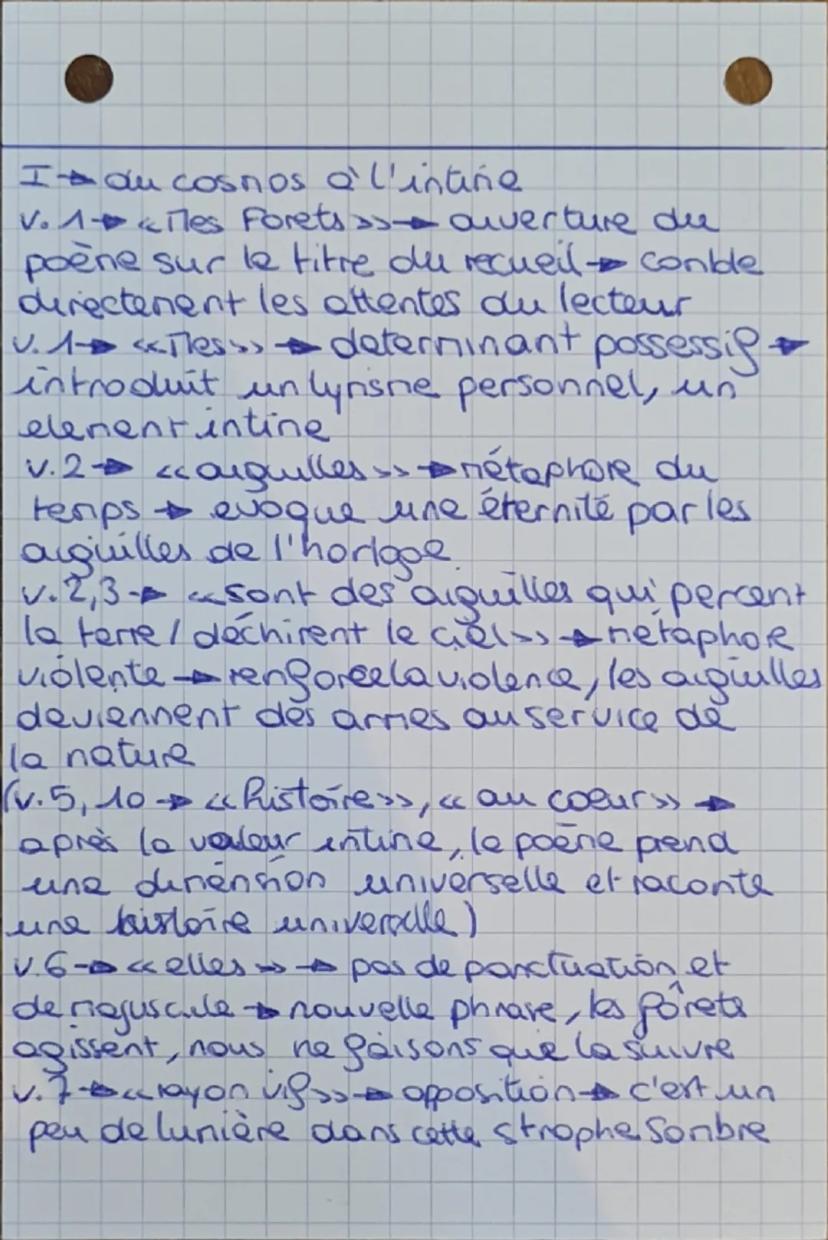 I → du cosmos à l'intime
v. 1 → « Mes Forets » → ouverture du
poème sur le titre du recueil → comble
directement les attentes du lecteur
v. 1 → « Mes » → determinant possessif →
introduit un lyrisme personnel, un
element intime
v. 2 → « aiguilles » → métaphore du
temps → evoque une éternité par les
aiguilles de l'horloge
v. 2, 3 → « sont des aiguilles qui percent
la terre / déchirent le ciel » → métaphore
violente → renforce la violence, les aiguilles
deviennent des armes au service de
la nature
(v. 5, 10 → « histoire », « au coeur » →
après la valeur intime, le poème prend
une dimension universelle et raconte
une histoire universelle)
v. 6 → « elles » → pas de ponctuation et
de majuscule → nouvelle phrase, les fôrets
agissent, nous ne faisons que la suivre
v. 7 → « rayon vif » → opposition → c'est un
peu de lumière dans cette strophe sombre